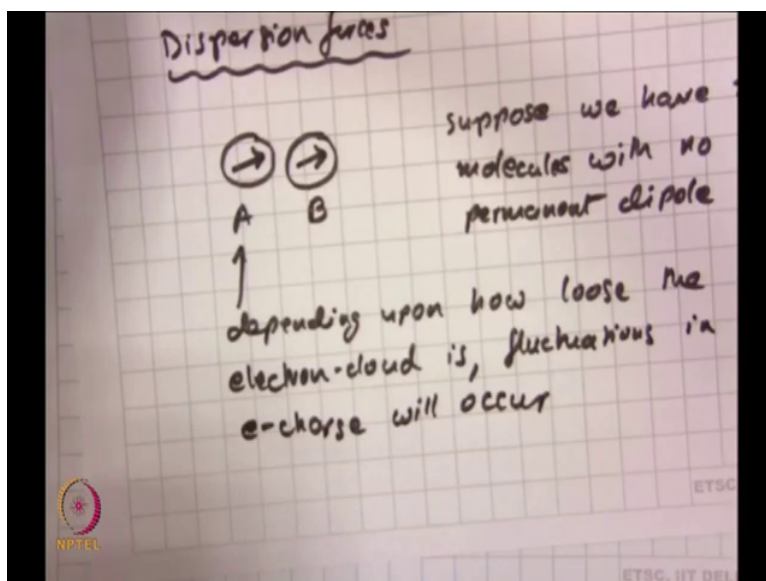 Dispersion forces
suppose we have
molecules with no
permanent dipole
A B
depending upon how loose the
electron-cloud is, fluctuations in
e-charge will occur
ETSC
NPTEL
ETSC, IIT DEL